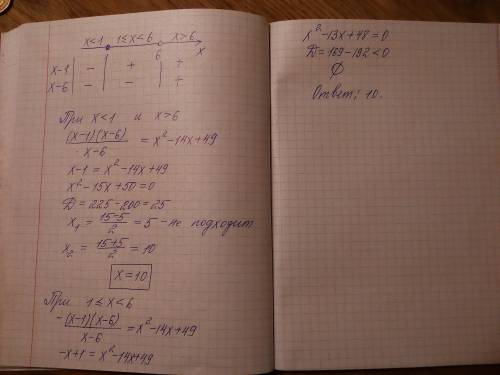 x<1 1≤x<6 x>6
6 x
x-1 | - | + | +
x-6 | - | - | +
При x<1 и x>6
(x-1)(x-6)/x-6 = x²-14x+49
x-1 = x²-14x+49
x²-15x+50=0
Д=225-200=25
x₁ = 15-5/2 = 5 - не подходит
x₂ = 15+5/2 = 10
x=10
При 1≤x<6
-(x-1)(x-6)/x-6 = x²-14x+49
-x+1 = x²-14x+49
x²-13x+48=0
Д=169-192<0
∅
Ответ: 10.